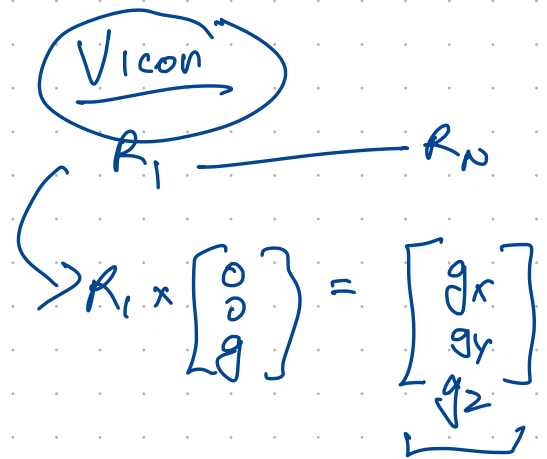 Vicon
R₁ — R_N
R₁ × [0 0 g] = [gx gy gz]